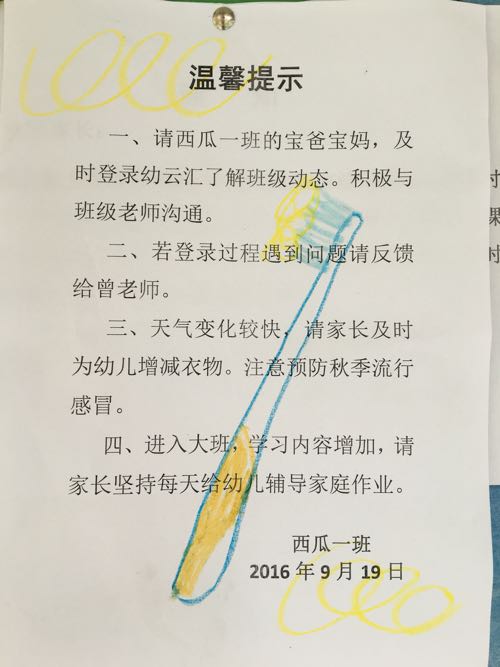 温馨提示
一、请西瓜一班的宝爸宝妈，及
时登录幼云汇了解班级动态。积极与
班级老师沟通。
二、若登录过程遇到问题请反馈
给曾老师。
三、天气变化较快，请家长及时
为幼儿增减衣物。注意预防秋季流行
感冒。
四、进入大班，学习内容增加，请
家长坚持每天给幼儿辅导家庭作业。
西瓜一班
2016年9月19日
时
课
时